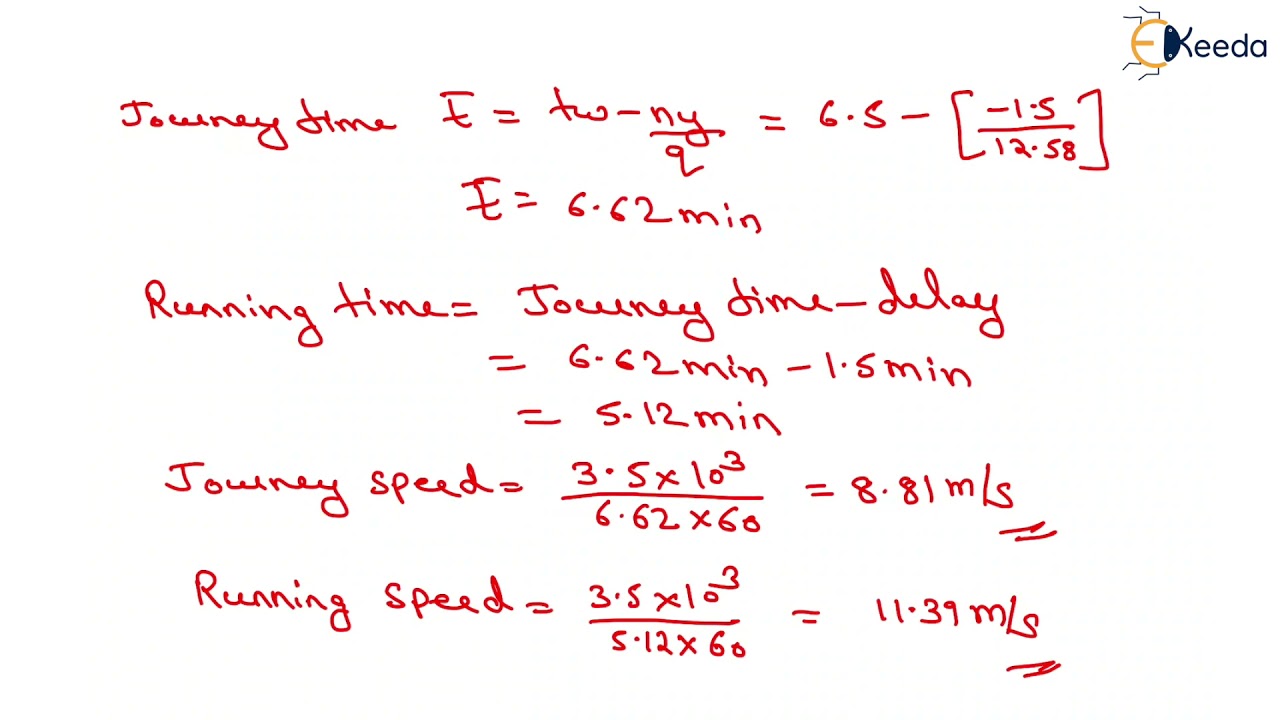 EKeeda
Journey time t̄ = tw - ny/q = 6.5 - [-1.5/12.58]
t̄ = 6.62 min
Running time = Journey time - delay
= 6.62 min - 1.5 min
= 5.12 min
Journey speed = 3.5 x 10³/6.62 x 60 = 8.81 m/s
Running speed = 3.5 x 10³/5.12 x 60 = 11.39 m/s